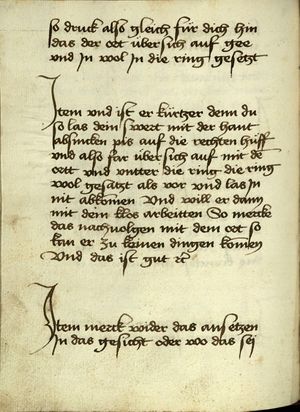 so druck also gleich für dich hin
das der ort übersich auf gee
und in wol in die ring gesetzt
Item vnd ist er kürtzer denn du
so las dein swert mit der hant
absincken pis auf die rechten hüff
vnd also far übersich auf mit dē
ortt vnd vntter die ring die ring
wol gesatzt als vor vnd las in
nit abkomen Vnd will er dann
mit dem klos arbeitten So mercke
das nachuolgen mit dem ort so
kan er zu keinen dingen komen
Vnd das ist gut ꝛc
Item merck wider das ansetzen
In das gesicht oder wo das sei